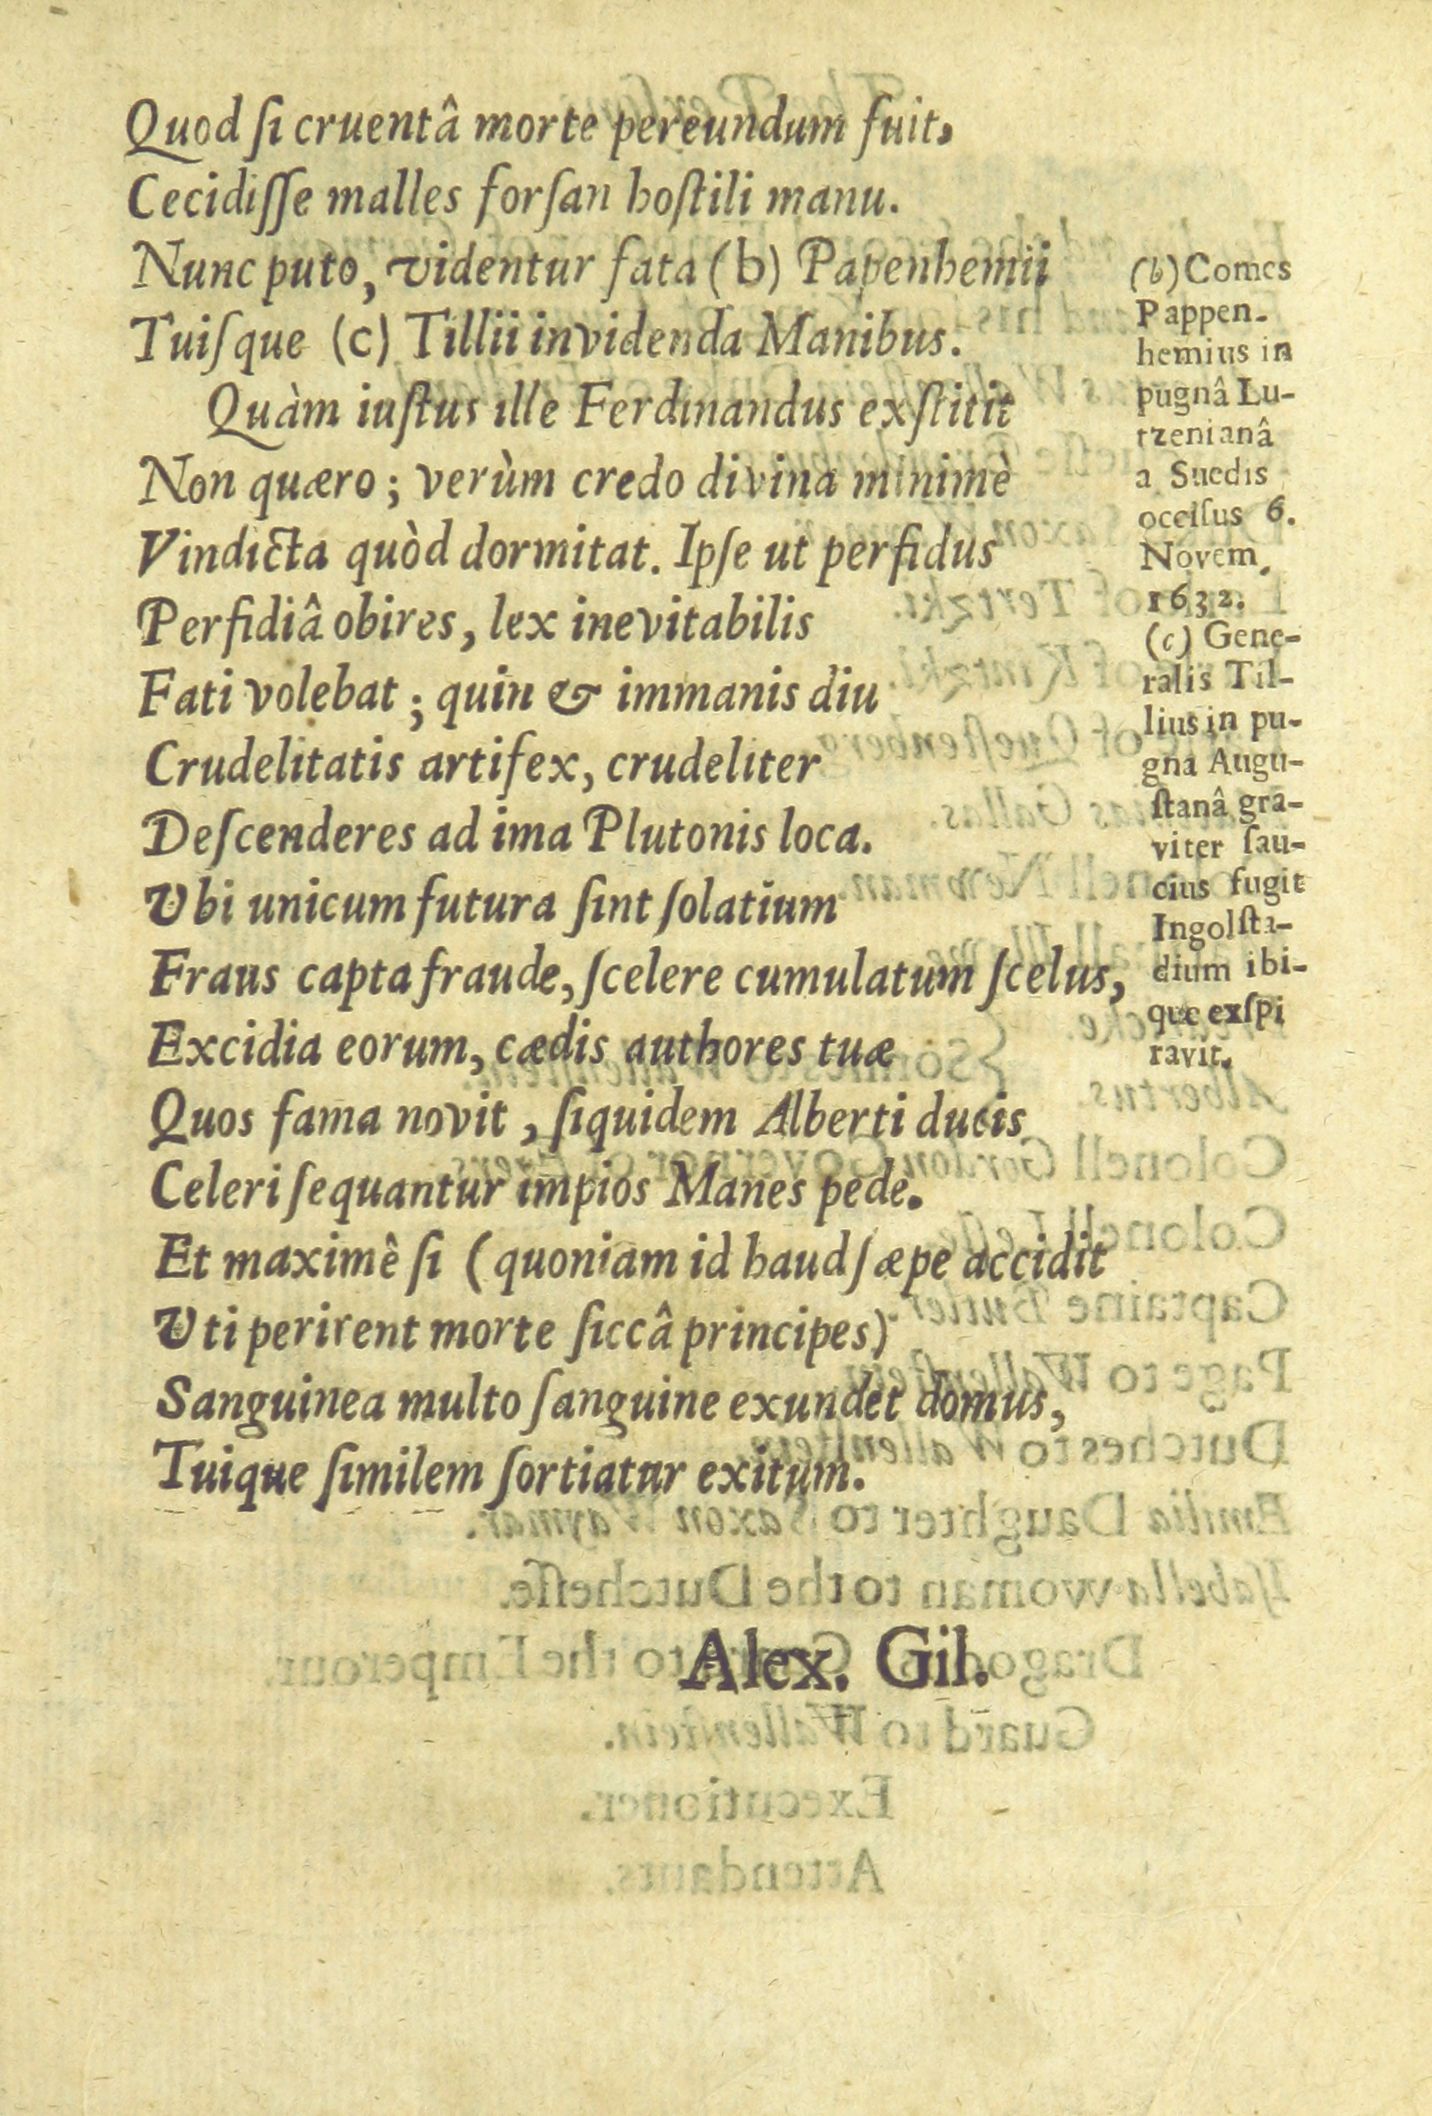 Quod ſi cruentâ morte pereundum fuit,
Cecidiſſe malles forſan hoſtili manu.
Nunc puto, videntur fata (b) Papenhemii
Tuiſque (c) Tillii invidenda Manibus.
Quàm iuſtus ille Ferdinandus exſtitit
Non quæro; verùm credo divina minimè
Vindicta quòd dormitat. Ipſe ut perfidus
Perfidiâ obires, lex inevitabilis
Fati volebat; quin & immanis diu
Crudelitatis artifex, crudeliter
Deſcenderes ad ima Plutonis loca.
Ubi unicum futura ſint ſolatium
Fraus capta fraude, ſcelere cumulatum ſcelus,
Excidia eorum, cædis authores tuæ
Quos fama novit, ſiquidem Alberti ducis
Celeri ſequantur impios Manes pede.
Et maximê ſi (quoniam id haud ſæpe accidit
Uti perirent morte ſiccâ principes)
Sanguinea multo ſanguine exundet domus,
Tuique ſimilem ſortiatur exitum.
Alex. Gil.
(b) Comes
Pappen-
hemius in
pugnâ Lu-
tzenianâ
a Suedis
occiſus 6.
Novem.
1632.
(c) Gene-
ralis Til-
lius in pu-
gna Augu-
ſtanâ gra-
viter ſau-
cius fugit
Ingolſta-
dium ibi-
que exſpi
ravit.